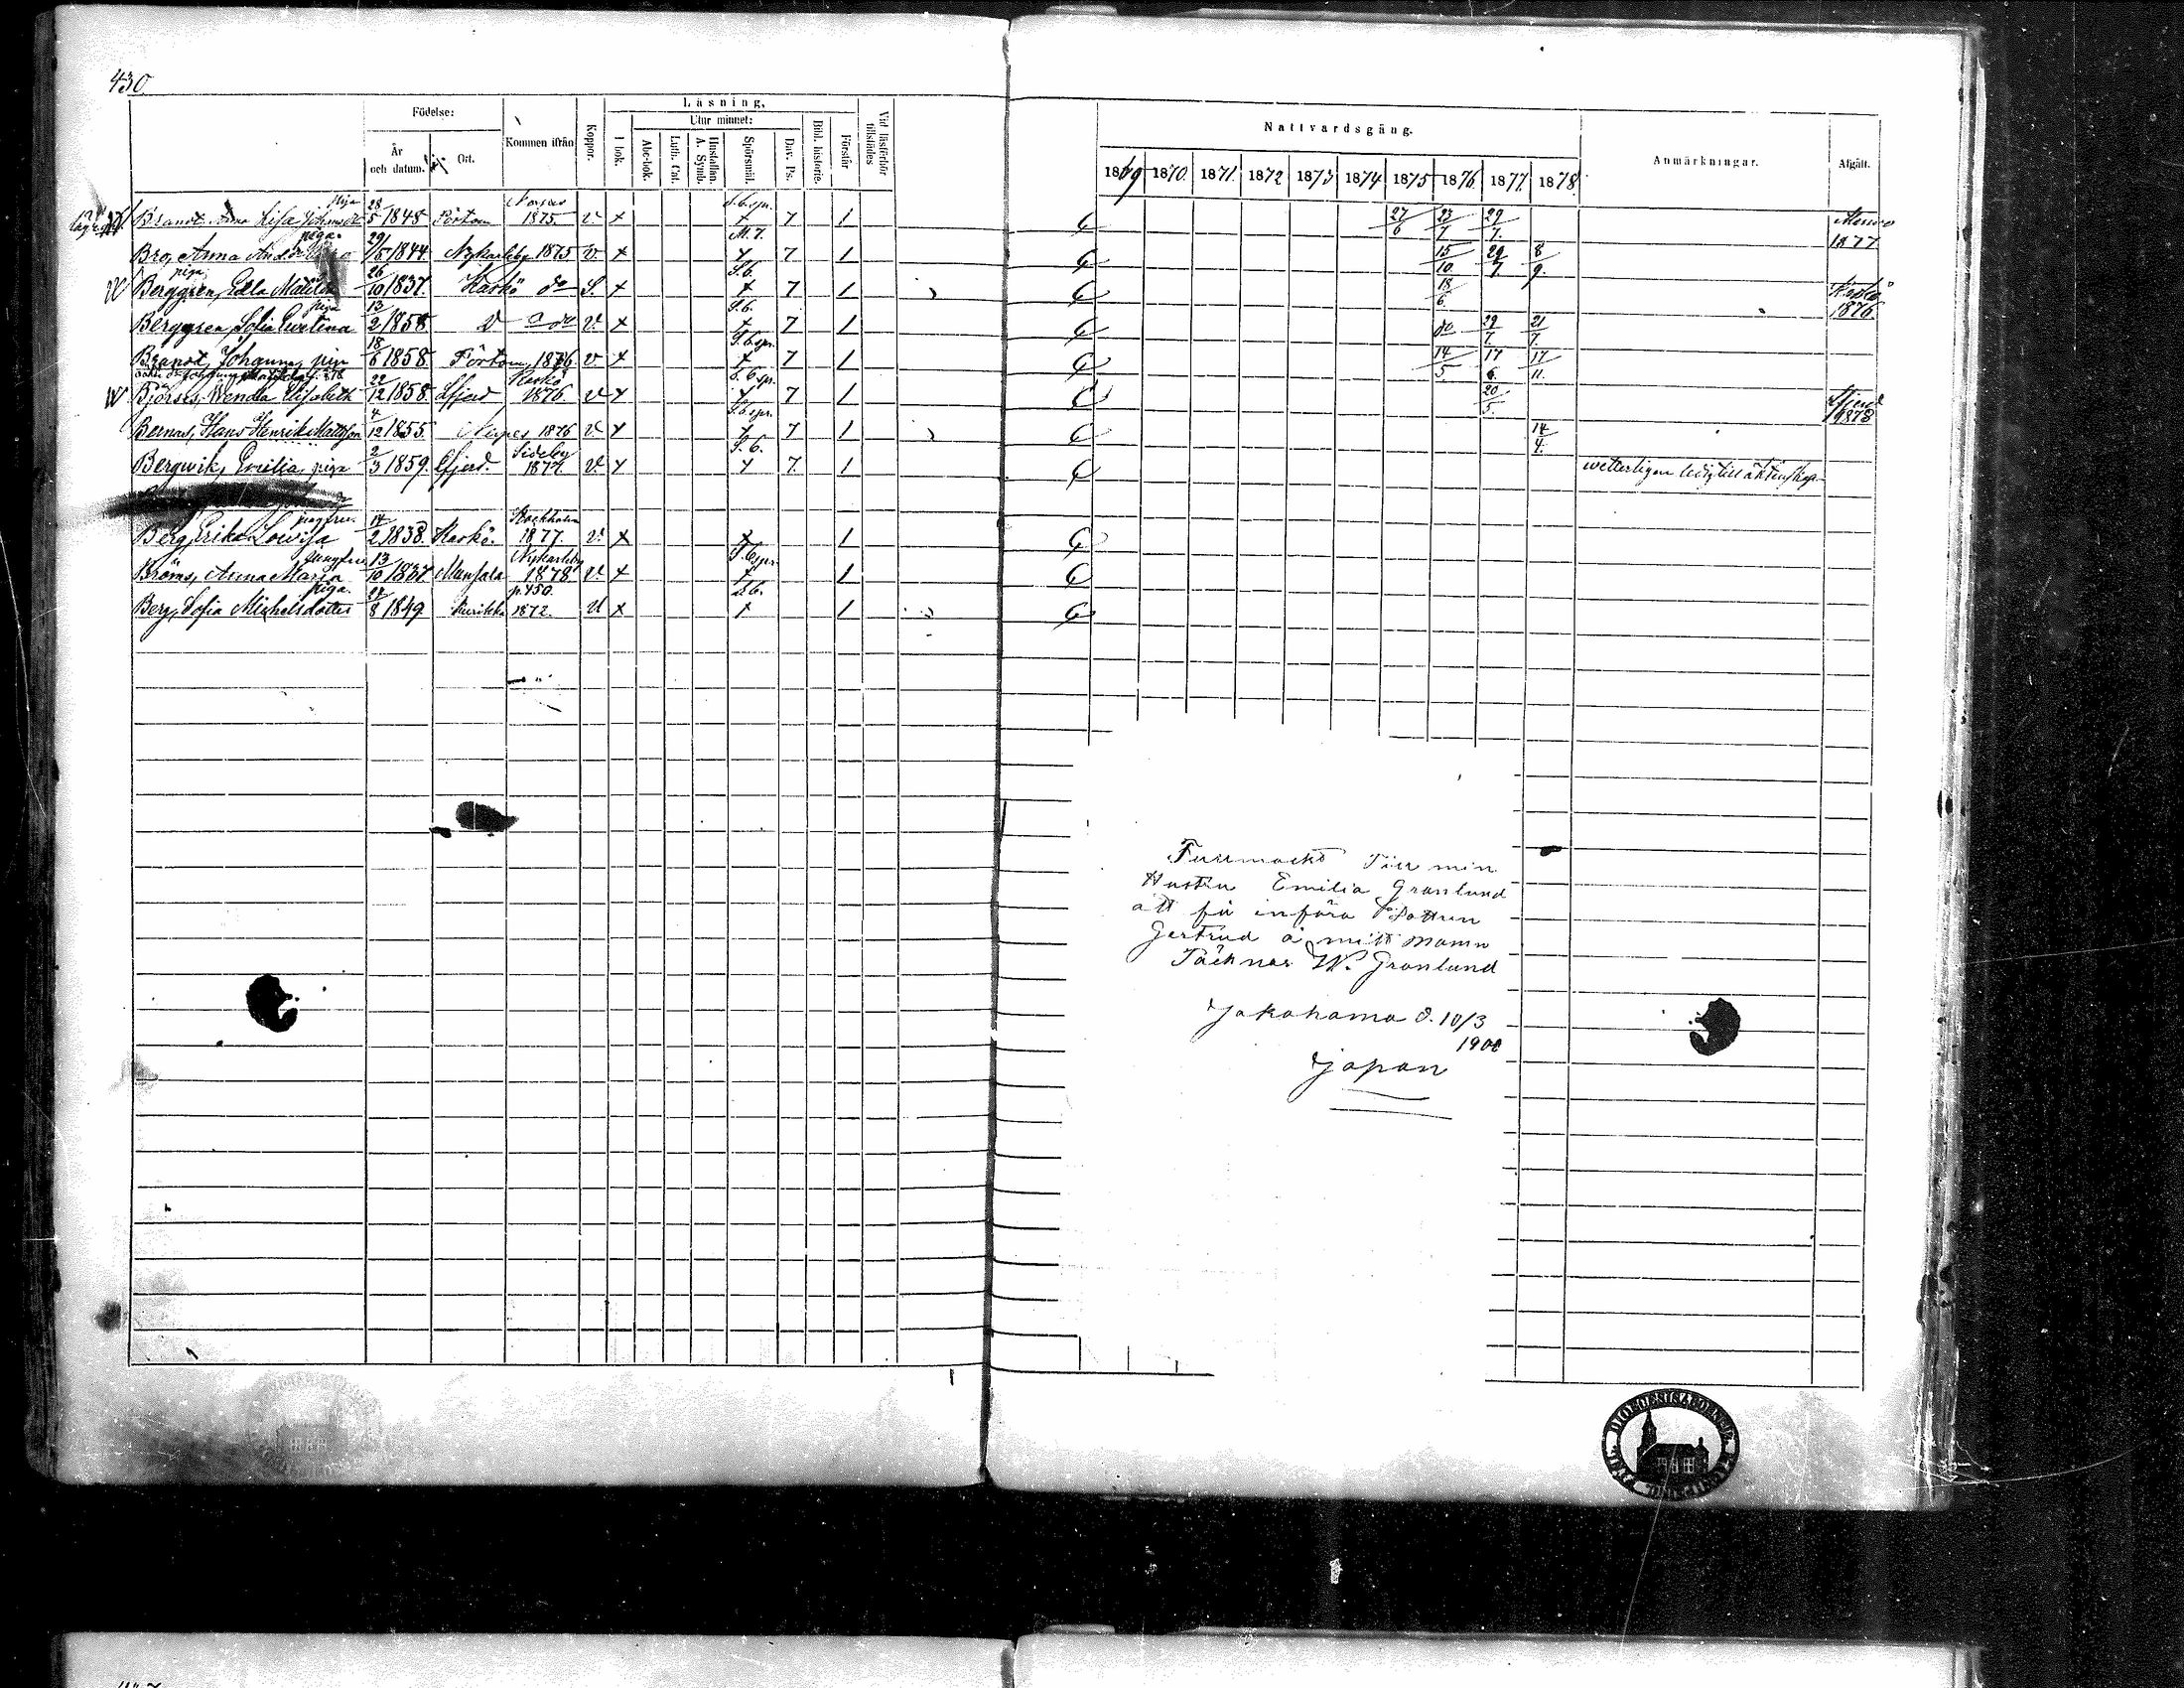 430
Födelse:
År och datum.
Ort.
Kommen ifrån
Koppor.
Läsning,
I bok.
Utur minnet:
Abc-bok.
Luth. Cat.
Hustaflan. A. Symb.
Spörsmål.
Dav. Ps.
Bibl. historie.
Förstår
Vid läsförhör tillstädes
Nattvardsgång.
1869 1870. 1871. 1872 1873 1874 1875 1876. 1877. 1878.
Anmärkningar.
Afgått.
piga
Brandt Anna Lisa Johansdr 28/5 1848 Pörtom 1875 v. + S.b.spr. + 7 1 27/6 23/7 29/7. 1877
piga.
Bro, Anna 29/5 1844. Nykarleby 1875 v. + M.7. + 7 1 15/10. 29/7 8/9.
piga
Berggren, Edla Matilda 26/10 1837. Kaskö do S. + S.b. + 7 1 18/6. Kaskö 1876.
piga
Berggren, Sofia Evelina 13/2 1858 do v. + S.b. + 7 1 do 29/7. 21/7.
Brandt, Johanna, pig 18/6 1858. Pörtom 1876. v. + S.b.spr. + 7 1 14/5. 17/6. 17/11.
Björses, Wendla Elisabeth 22/12 1858. Sfjerd Kaskö 1876. v + S.b.spr. + 7 1 20/5. Sfjerd 1878
Bernas, Hans Henrik Mattsson 4/12 1855. Nerpes 1876 v. + S.b.spr. + 7 1 14/4.
Bergwik, Emilia, piga 2/3 1859. Sfjerd. Sideby 1877. v. + S.b. + 7. 1 wetterligen ledig till äktenskap
jungfru.
Berg, Erika Lovisa 14/2 1838. Kaskö. Stockholm 1877. v. + + 1
Jungfru
Bröms, Anna Maria 13/10 1837 Munsala Nykarleby 1878 v. + S.b.spr. + 1
piga.
Berg, Sofia Michelsdotter 24/8 1849. Kurikka p.450. 1872. v + S.b. + 1
Fullmackt Till min
Hustru Emilia Grönlund
att få införa Dottren
Gertrud å mitt Namn
Täcknar W. Grönlund
Jakohama d. 10/3
1900
Japan